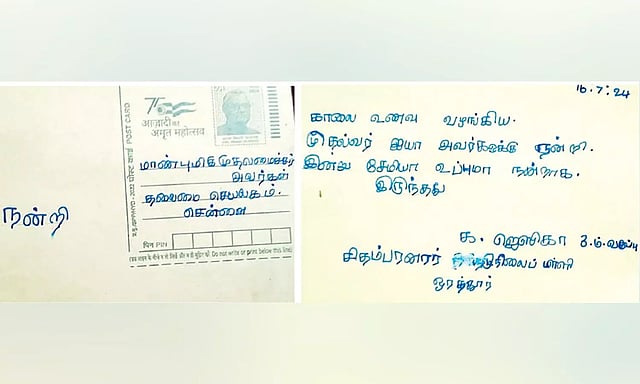 நன்றி
POST CARD
75
आज़ादी का
अमृत महोत्सव
மாண்புமிகு முதலமைச்சர்
அவர்கள்
தலைமை செயலகம்.
சென்னை
पिन PIN
Do not write or print below this line
16.7.24
காலை உணவு வழங்கிய.
முதல்வர் ஐயா அவர்களுக்கு நன்றி.
இன்று சேமியா உப்புமா நன்றாக.
இருந்தது
க. ஜெஸிகா 3.ம்.வகுப்பு
சிதம்பரனார் நடுநிலைப் பள்ளி
ஓரத்தூர்